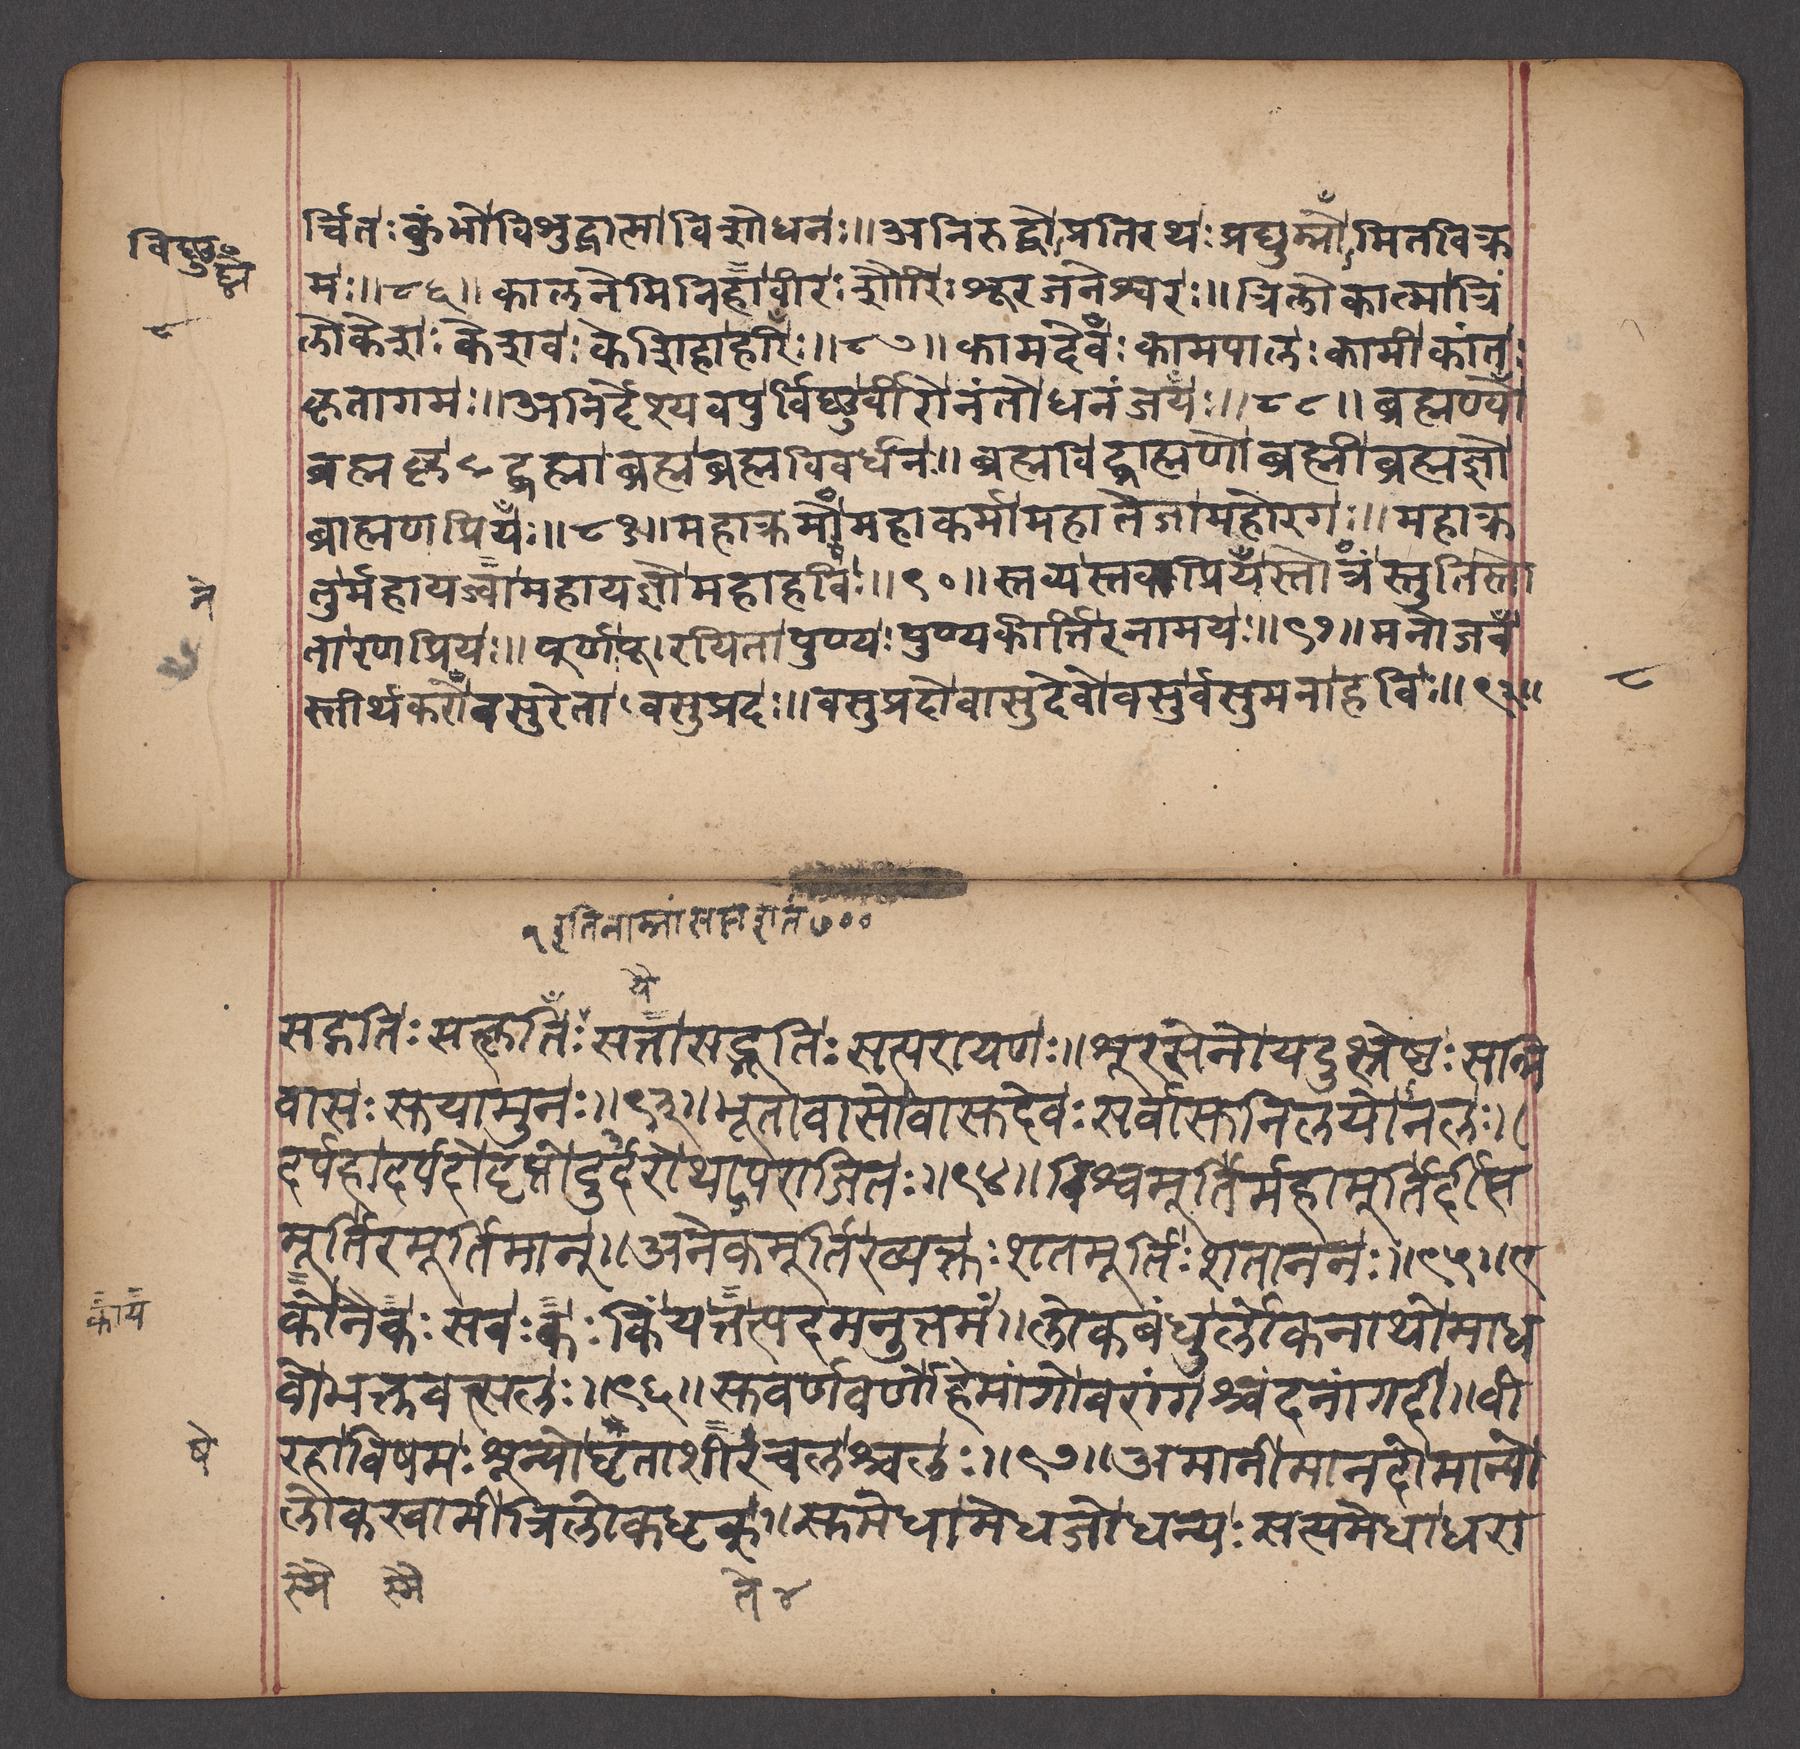 विष्णु स०
र्चितः कुंभोविशुद्धात्माविशोधनः॥ अनिरुद्धोप्रतिरथः प्रद्युम्नोमितविक्र
मः॥८६॥ कालनेमिनिहावीरः शौरिः शूरजनेश्वरः॥ त्रिलोकात्मात्रि
८
लोकेशः केशवः केशिहाहरिः॥८७॥ कामदेवः कामपालः कामीकांतः
कृतागमः॥ अनिर्देश्यवपुर्विष्णुर्वीरोनंतोधनंजयः॥८८॥ ब्रह्मण्यो
ब्रह्मकृद्ब्रह्माब्रह्मब्रह्मविवर्धनः॥ ब्रह्मविद्ब्राह्मणोब्रह्मीब्रह्मज्ञो
ब्राह्मणप्रियः॥८९॥ महाक्रमोमहाकर्मामहातेजामहोरगः॥ महाक्र
तुर्महायज्वामहायज्ञोमहाहविः॥९०॥ स्तव्यस्तवप्रियस्तोत्रंस्तुतिस्तो
ने
तारणप्रियः॥ पूर्णःपूरयितापुण्यः पुण्यकीर्त्तिरनामयः॥९१॥ मनोजव
स्तीर्थकरोवसुरेतावसुप्रदः॥ वसुप्रदोवासुदेवोवसुर्वसुमनाहविः॥९२॥
८
१ इतिनाम्नांसप्तशतं ७००
यै
सद्गतिः सत्कृतिः सत्तासद्भूतिः सत्परायणः॥ शूरसेनोयदुश्रेष्ठः सन्नि
वासः सुयामुनः॥९३॥ भूतावासोवासुदेवः सर्वासुनिलयोनलः॥
दर्पहादर्पदोदृप्तोदुर्द्धरोथापराजितः॥९४॥ विश्वमूर्तिर्महामूर्तिर्दीप्त
मूर्तिरमूर्तिमान्॥ अनेकमूर्तिरव्यक्तः शतमूर्तिः शताननः॥९५॥ ए
काय
कोनैकः सवः कः किंयत्तत्पदमनुत्तमं॥ लोकबंधुर्लोकनाथोमाध
वोभक्तवत्सलः॥९६॥ सुवर्णवर्णोहेमांगोवरांगश्चंदनांगदी॥ वी
रहाविषमः शून्योघृताशीरचलश्चलः॥९७॥ अमानीमानदोमान्यो
षे
लोकस्वामीत्रिलोकधृक्॥ सुमेधामेधजोधन्यः सत्यमेधाधरा
स्मै स्मै ते ४